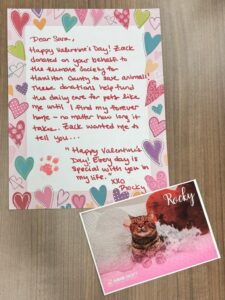 Dear Sara,
Happy Valentine's Day! Zack
donated on your behalf to
the Humane Society for
Hamilton County to save animals!
These donations help fund
the daily care for pets like
me until I find my forever
home - no matter how long it
takes. Zack wanted me to
tell you...
"Happy Valentine's
Day! Every day is
special with you in
my life."
XOXO
Rocky
Rocky